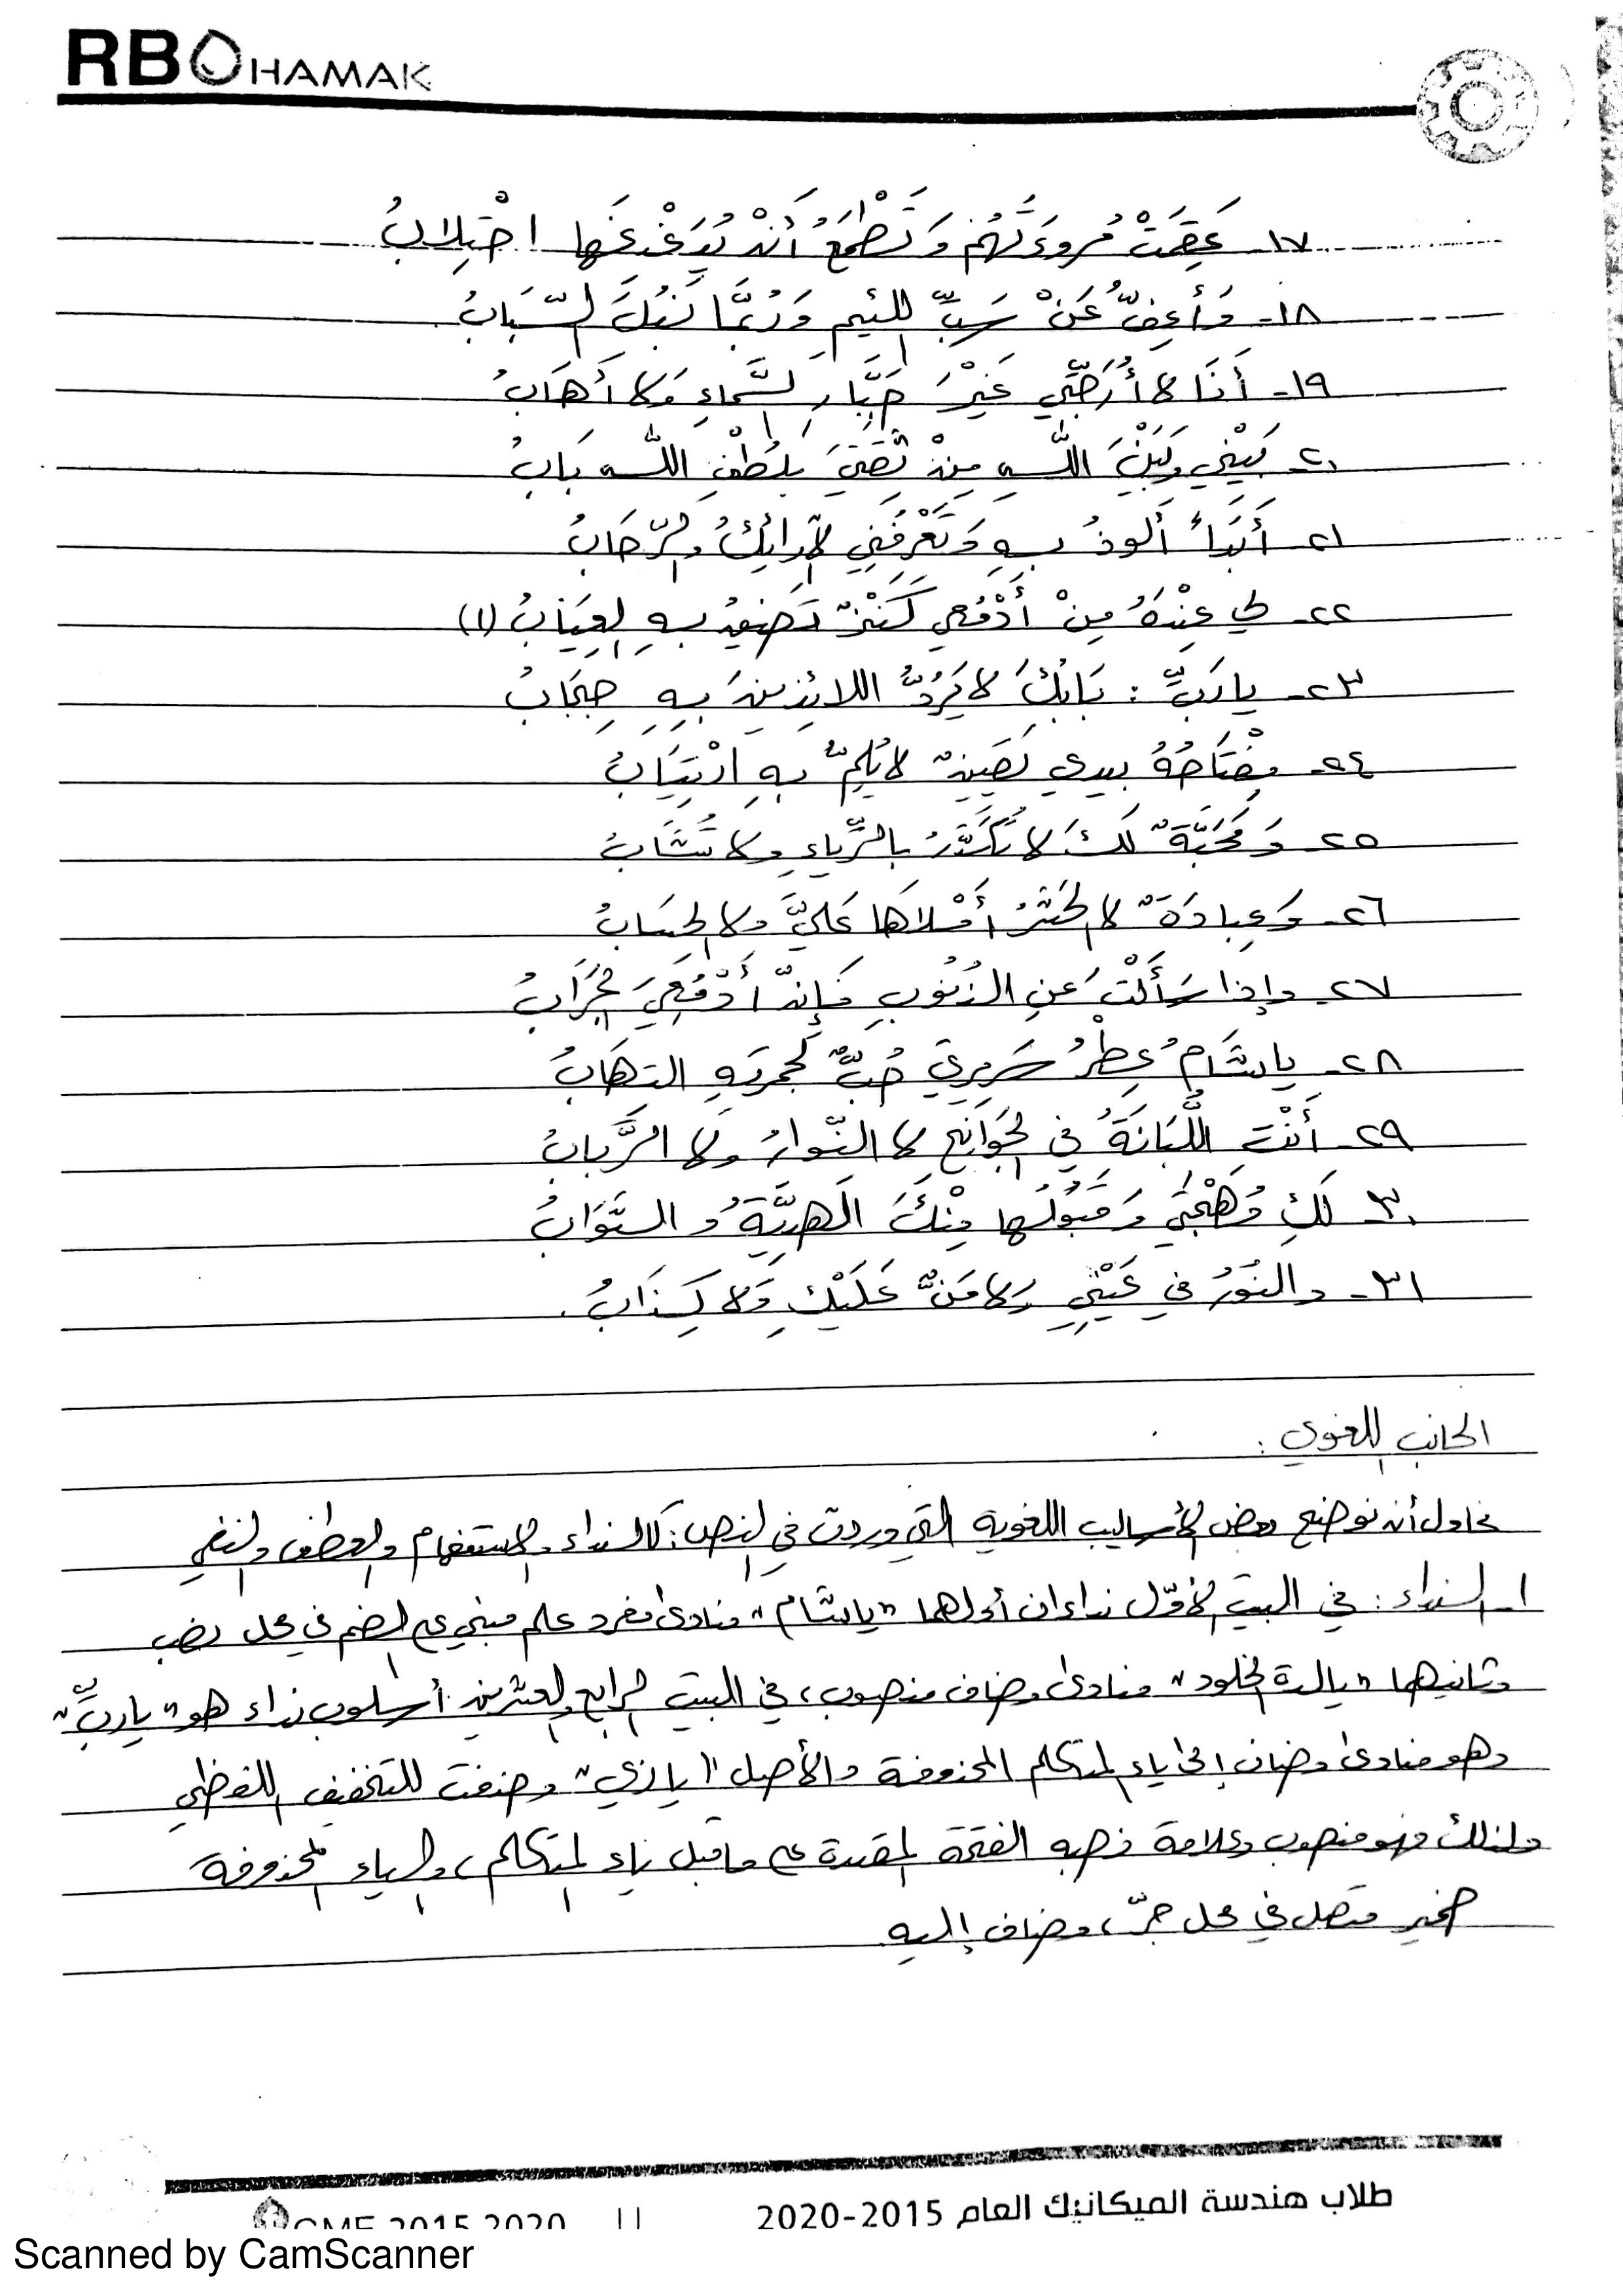 RB HAMAK
١٧- عَقِمَتْ مُروءَتُهُم وَتَطْمَعُ أَنْ يُدَغْدِغَها احْتِلابُ
١٨- وَأَعِفُّ عَنْ سَبِّ اللئيمِ وَرُبَّما نَبُلَ السِّبَابُ
١٩- أَنَا لا أُرَجِّي غَيْرَ جَبَّارِ السَّماءِ وَلا أَهَابُ
٢٠- بَيْني وَبَيْنَ اللهِ مِنْ ثِقَتي بِلُطْفِ اللهِ بَابُ
٢١- أَبَداً أَلوذُ بِهِ وَتَعْرِفُنِي الأَرائِكُ والرِّحَابُ
٢٢- لي عِنْدَهُ مِنْ أَدْمُعي كَنْزٌ تَضِيقُ بِهِ العِيَابُ (١)
٢٣- يا رَبِّ : بَابُكَ لا يَرُدُّ اللائِذينَ بِهِ حِجَابُ
٢٤- مِفْتَاحُهُ بيدي يَقِينٌ لا يُلِمُّ بِهِ ارْتِيَابُ
٢٥- وَمَحَبَّةٌ لَكَ لا تُكَدَّرُ بالرِّياءِ ولا تُشَابُ
٢٦- وَعِبادَةٌ لا الحَشْرُ أَمْلاهَا عَلَيَّ ولا الحِسَابُ
٢٧- وإذا سَأَلْتَ عَنِ الذنوبِ فَإِنَّ أَدْمُعِيَ الجَوَابُ
٢٨- يا شَامُ عِطْرُ سَرِيرَتي حُبٌّ لجمرتِهِ التهَابُ
٢٩- أَنْتِ اللُّبَانَةُ في الجَوَانِحِ لا النَّوارُ ولا الرَّبابُ
٣٠- لَكِ مُهْجَتي وَقَبُولُها مِنْكِ الهَدِيَّةُ والثَّوَابُ
٣١- والنُورُ في عَيْنِي ولا مَنٌّ عَلَيْكِ وَلا كِذَابُ.
الجانب اللغوي :
نحاول أن نوضح بعض الأساليب اللغوية التي وردت في النص: كالنداء والاستفهام والعطف والنفي
١- النداء : في البيت الأوّل نداءان أولهما "يا شام" منادى مفرد علم مبني على الضم في محل نصب
وثانيهما "يا لدة الخلود" منادى مضاف منصوب، في البيت الرابع والعشرين أسلوب نداء هو "يا ربِّ"
وهو منادى مضاف إلى ياء المتكلم المحذوفة والأصل "يا ربي" وحذفت للتخفيف اللفظي
ولذلك فهو منصوب وعلامة نصبه الفتحة المقدرة على ما قبل ياء المتكلم، والياء المحذوفة
ضمير متصل في محل جرّ، مضاف إليه
طلاب هندسة الميكانيك العام 2015-2020
Scanned by CamScanner